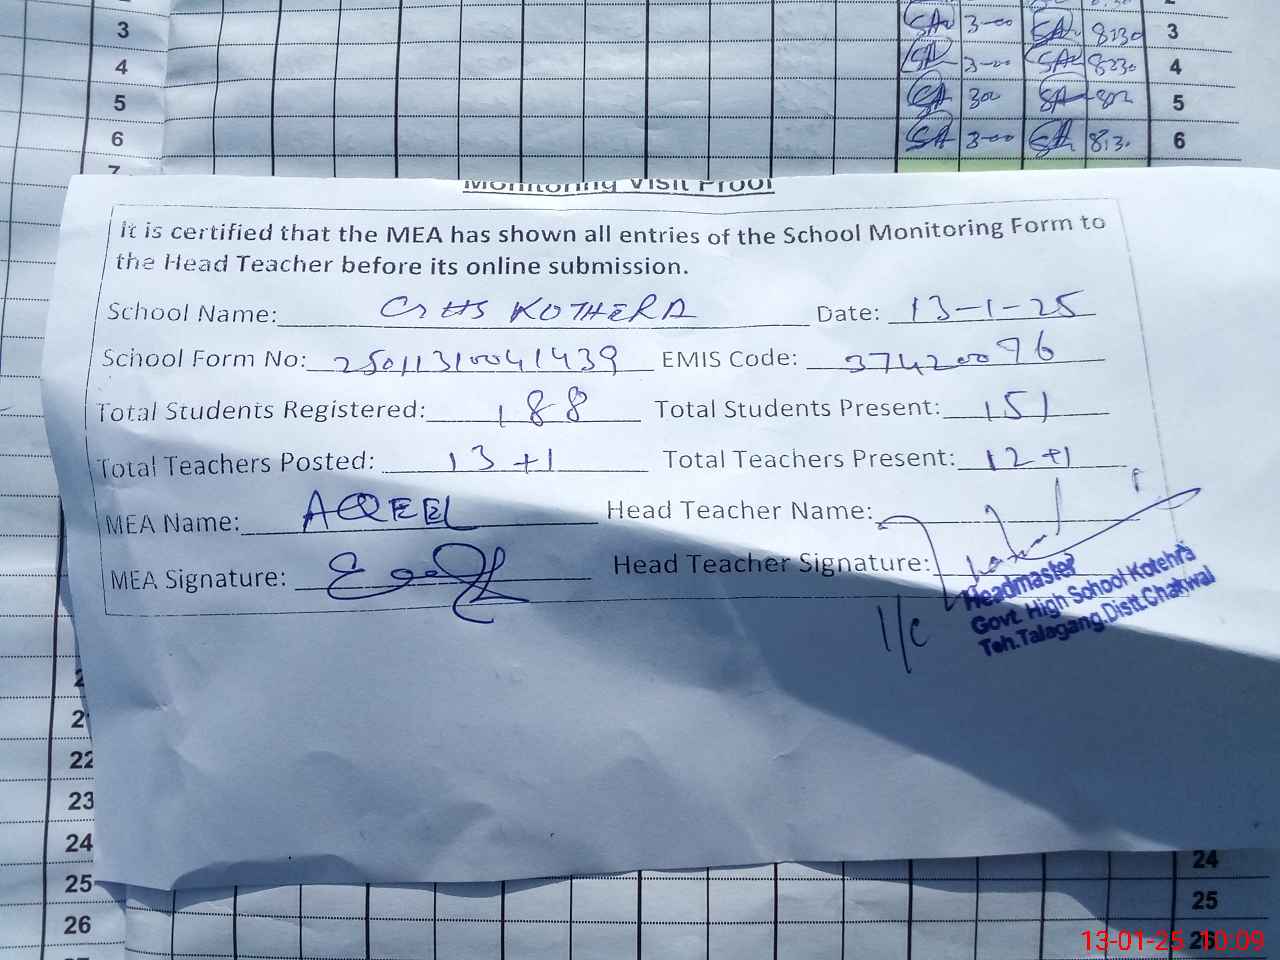 3 SA 3-00 SA 8230 3
4 SA 3-00 SA 8230 4
5 SA 300 SA 5
6 SA 3-00 SA 6
7
Monitoring Visit Proof
It is certified that the MEA has shown all entries of the School Monitoring Form to
the Head Teacher before its online submission.
School Name: GHS KOTHERA Date: 13-1-25
School Form No: 25011310041439 EMIS Code: 37420096
Total Students Registered: 188 Total Students Present: 151
Total Teachers Posted: 13+1 Total Teachers Present: 12+1
MEA Name: AQEEL Head Teacher Name:
MEA Signature: Head Teacher Signature:
I/C
Headmaster
Govt. High School Kotehra
Teh.Talagang.Distt.Chakwal
22
23
24 24
25 25
26 26
13-01-25 10:09